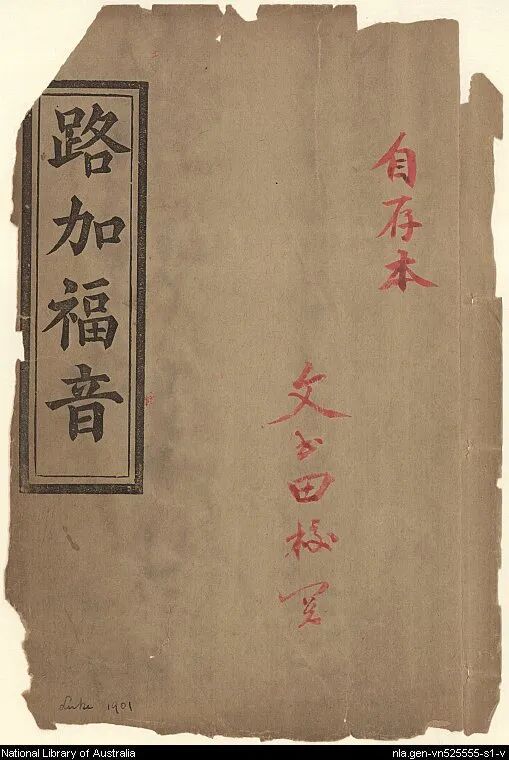 自存本
文書田校閱
路加福音
Luke 1901
National Library of Australia
nla.gen-vn525555-s1-v